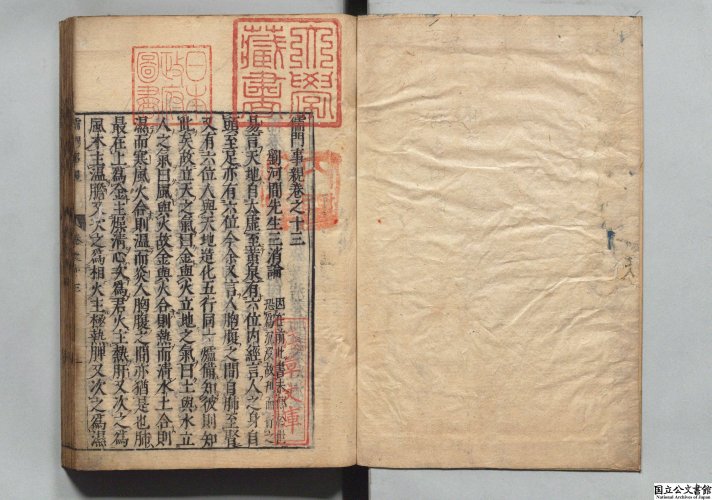 儒門事親卷之十三
劉河間先生三消論
易言天地自太虛至黃泉有六位內經言人之身自
頭至足亦有六位今余又言人胸腹之間自肺至腎
又有六位人與天地造化五行同一爐備知彼則知
此矣故立天之氣曰金與火立地之氣曰土與水立
人之氣曰風與火故金與火合則熱而清水土合則
濕而寒風火合則溫而炎人胸腹之間亦猶是也肺
最在上為金主燥清心次為君火主熱肝又次之為
風木主溫膽又次之為相火主極熱脾又次之為濕
大學
藏書
日本
政府
圖書
文庫
国立公文書館
National Archives of Japan